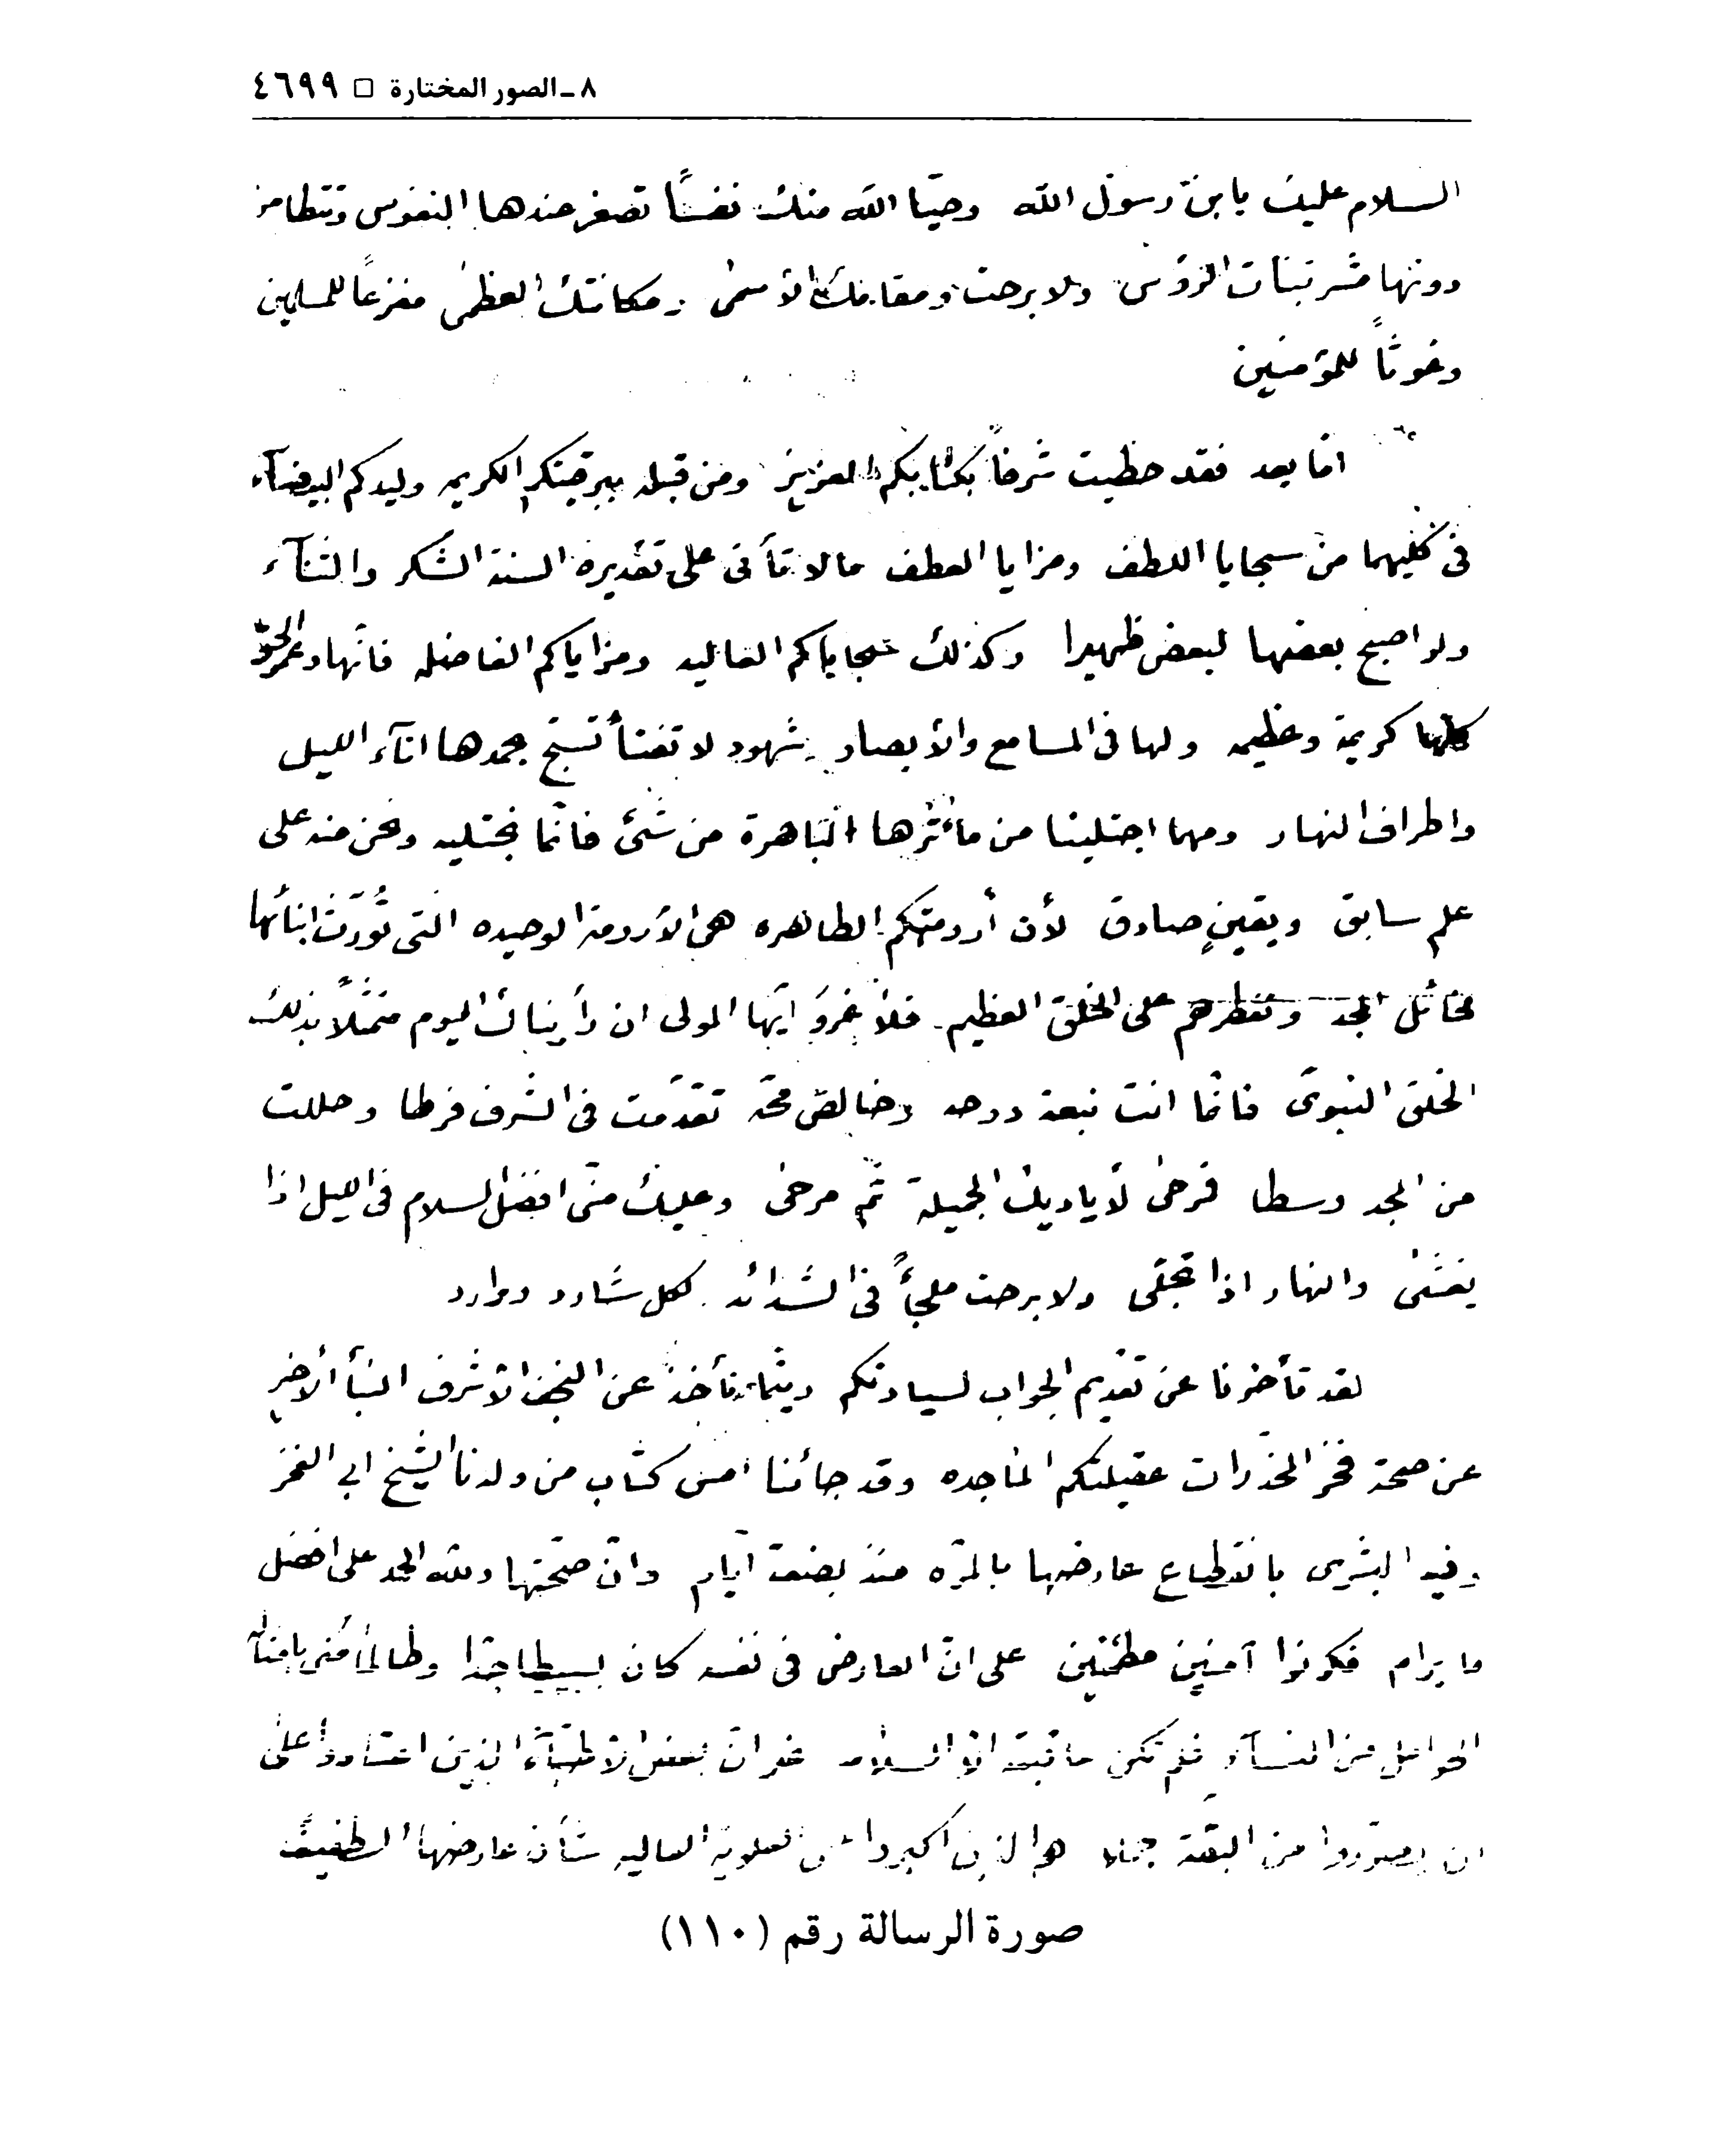 ٨ ـ الصور المختارة □ ٤٦٩٩
السلام عليك يابن رسول الله وحيّا الله منك نفساً تصغر عندها النفوس وتتطامن
دونها مشرئبات الرؤس ولا برحت ومقامك الأسمى ومكانتك العظمى مفزعاً للمسلمين
وغوثاً للمؤمنين
امّا بعد فقد حظيت شرفاً بكتابكم العزيز ومن قبله ببرقيتكم الكريمه وليدكم البيضآء
فى كليهما من سجايا اللطف ومزايا العطف مالا تأتى على تقديره السنة الشكر والثنآء
ولو اصبح بعضها لبعض ظهيرا وكذلك سجاياكم العاليه ومزاياكم الفاضله فانّها وعمر الحقّ
كلها كريمة وعظيمه ولها فى المسامع والأبصار شهود لا تفتأ تسبّح بحمدها انآء الليل
واطراف النهار ومهما اجتلينا من مأثرها الباهرة من شئ فانّما نجتليه ونحن منه على
علم سابق ويقينٍ صادق لأن أرومتكم الطاهره هى الأرومة الوحيده التى تُورّث ابنائها
مخائل المجد وتفطرهم على الخلق العظيم فلا غروَ ايّها المولى ان رأيناك اليوم متمثّلاً بذلك
الخلق النبوىّ فانّما انت نبعة دوحه وخالص محّه تقدّمت فى الشرف فرطا وحللت
من المجد وسطا فرحى لأياديك الجميلة ثمّ مرحى وعليك منّى افضل السلام فى الليل اذا
يغشى والنهار اذا تجلّى ولا برحت ملجأً فى الشدائد لكل شارد ووارد
لقد تأخرنا عن تقديم الجواب لسيادتكم ريثما نأخذ عن النجف الأشرف النبأ الأخير
عن صحة فخر المخدّرات عقيلتكم الماجده وقد جائنا امس كتاب من ولدنا الشيخ ابى الفخر
وفيه البشرى بانقطاع عارضها بالمرّه منذ بضعة ايّام وانّ صحّتها ولله الحمد على افضل
ما يرام فكونوا آمنين مطمئنين على انّ العارض فى نفسه كان بسيطا جدّا وطالما مُنى بامثاله
الحوامل من النسآء فلم تكن عاقبته الّا السلامه غير انّ بعض الأطبّآء الذين اعتادوا على
ان يصوّروا من البقّة جملا هم الذين اكبروا العلوية العاليه شأن عارضها الطفيف
صورة الرسالة رقم (١١٠)